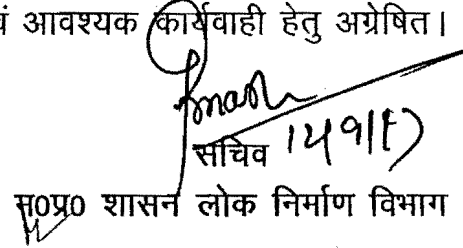 वं आवश्यक कार्यवाही हेतु अग्रेषित।
सचिव
म०प्र० शासन लोक निर्माण विभाग